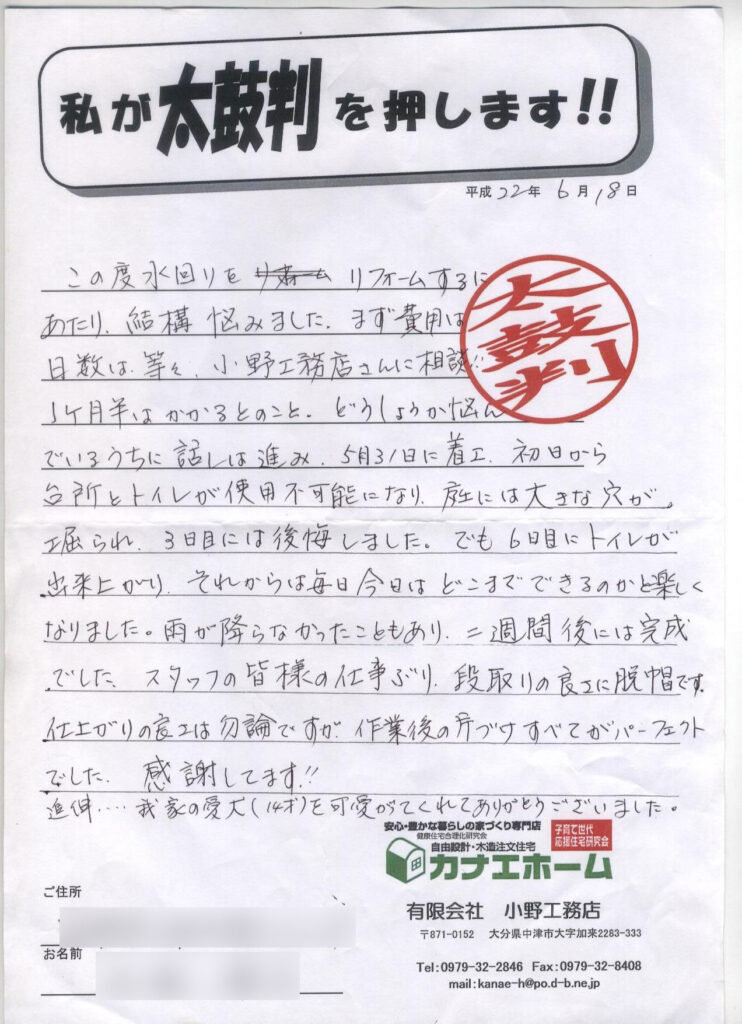 私が太鼓判を押します!!
平成22年 6月18日
この度水回りを リフォームするに
あたり、結構 悩みました。まず費用は
日数は、等々、小野工務店さんに相談!!
1ケ月半はかかるとのこと。どうしようか悩ん
でいるうちに 話しは進み、5月31日に着工、初日から
台所とトイレが使用不可能になり、庭には大きな穴が
掘られ、3日目には後悔しました。でも6日目にトイレが
出来上がり、それからは毎日今日は どこまでできるのかと楽しく
なりました。雨が降らなかったこともあり、二週間後には完成
でした。スタッフの皆様の仕事ぶり、段取りの良さに脱帽です。
仕上がりの良さは勿論ですが、作業後の片づけすべてがパーフェクト
でした。 感謝してます!!
追伸.... 我家の愛犬(14才)を可愛がってくれてありがとうございました。
太鼓判
安心・豊かな暮らしの家づくり専門店
健康住宅合理化研究会
子育て世代
応援住宅研究会
自由設計・木造注文住宅
カナエホーム
ご住所
有限会社 小野工務店
〒871-0152 大分県中津市大字加来2283-333
お名前
Tel:0979-32-2846 Fax:0979-32-8408
mail:kanae-h@po.d-b.ne.jp